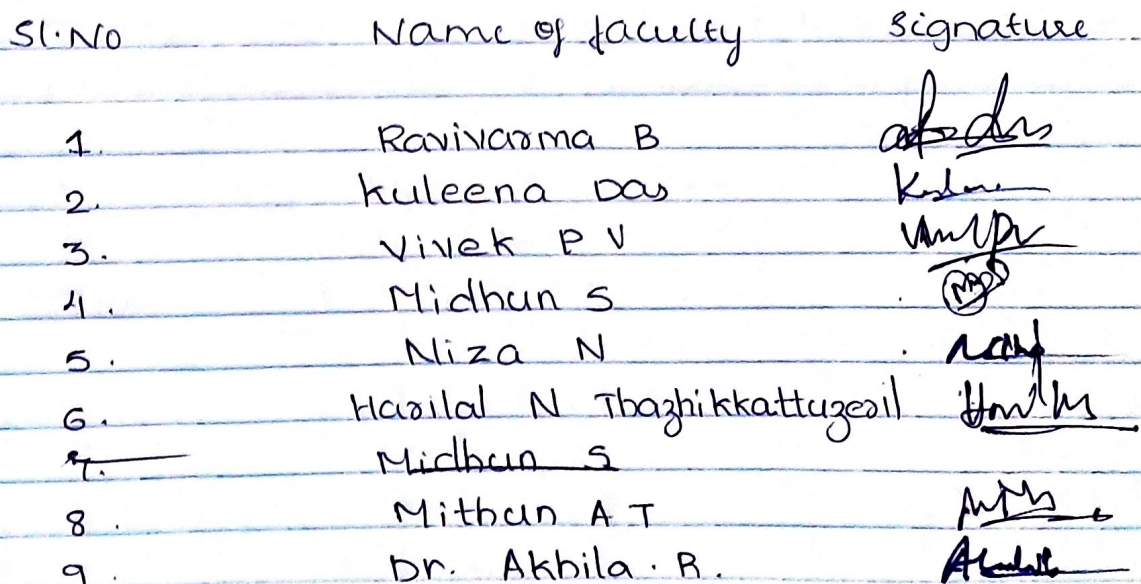 Sl.No Name of faculty Signature
1. Ravivarma B
2. Kuleena Das
3. Vivek P V
4. Midhun S
5. Niza N
6. Harilal N Thazhikkattuzeril
7. Midhun S
8. Mithun A T
9. Dr. Akhila. R.